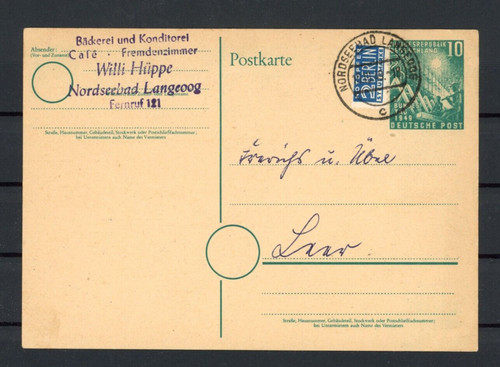 Absender:
Bäckerei und Konditorei
Café - Fremdenzimmer
Willi Hüppe
Nordseebad Langeoog
Fernruf 121
Straße, Hausnummer, Gebäudeteil, Stockwerk oder Postschließfachnummer;
bei Untermietern auch Name des Vermieters
Postkarte
NOTOPFER
2 BERLIN
STEUERMARKE
NORDSEEBAD LANGEOOG
c
BUNDESREPUBLIK
DEUTSCHLAND
10
1949
DEUTSCHE POST
Frerichs u. Übel
Leer.
Straße, Hausnummer, Gebäudeteil, Stockwerk oder Postschließfachnummer;
bei Untermietern auch Name des Vermieters